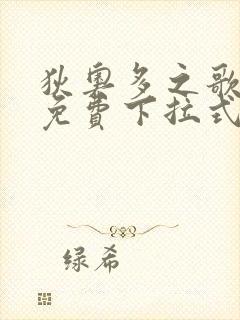 狄奧多之歌
免費下拉式
绿希